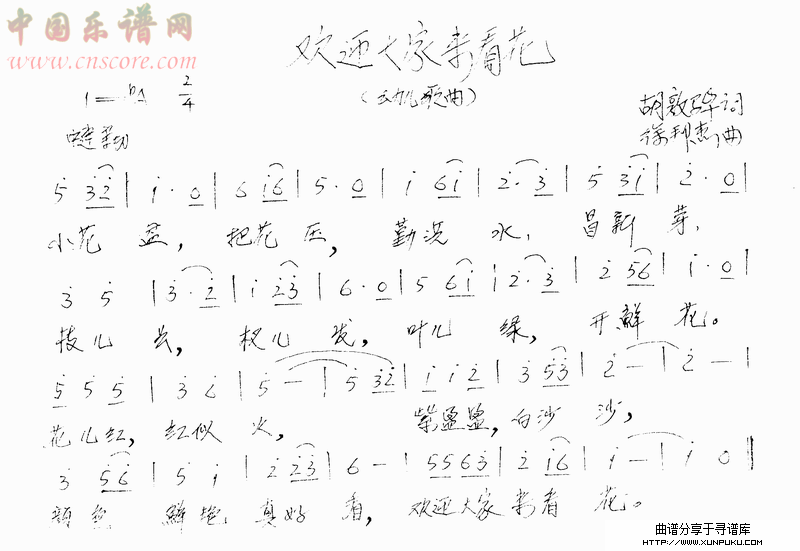 中国乐谱网
www.cnscore.com
欢迎大家来看花
(幼儿歌曲)
1=♭A 2/4
胡敦骅词
徐邦杰曲
5 3 2 | 1 · 0 | 6 1 6 | 5 · 0 | 1 6 1 | 2 · 3 | 5 3 1 | 2 · 0 |
小花 盆, 把花 压, 勤浇 水, 冒新 芽,
3 5 | 3 · 2 | 1 2 3 | 6 · 0 | 5 6 1 | 2 · 3 | 2 5 6 | 1 · 0 |
枝儿 长, 杈儿 发, 叶儿 绿, 开鲜 花。
5 5 5 | 3 6 | 5 — | 5 3 2 | 1 1 2 | 3 5 3 | 2 — | 2 — |
花儿红, 红似 火, 紫盈盈, 白沙 沙,
3 5 6 | 5 1 | 2 2 3 | 6 — | 5 5 6 3 | 2 1 6 | 1 — | 1 0 ‖
颜色 鲜艳 真好 看, 欢迎大家 来看 花。
曲谱分享于寻谱库
HTTP://WWW.XUNPUKU.COM